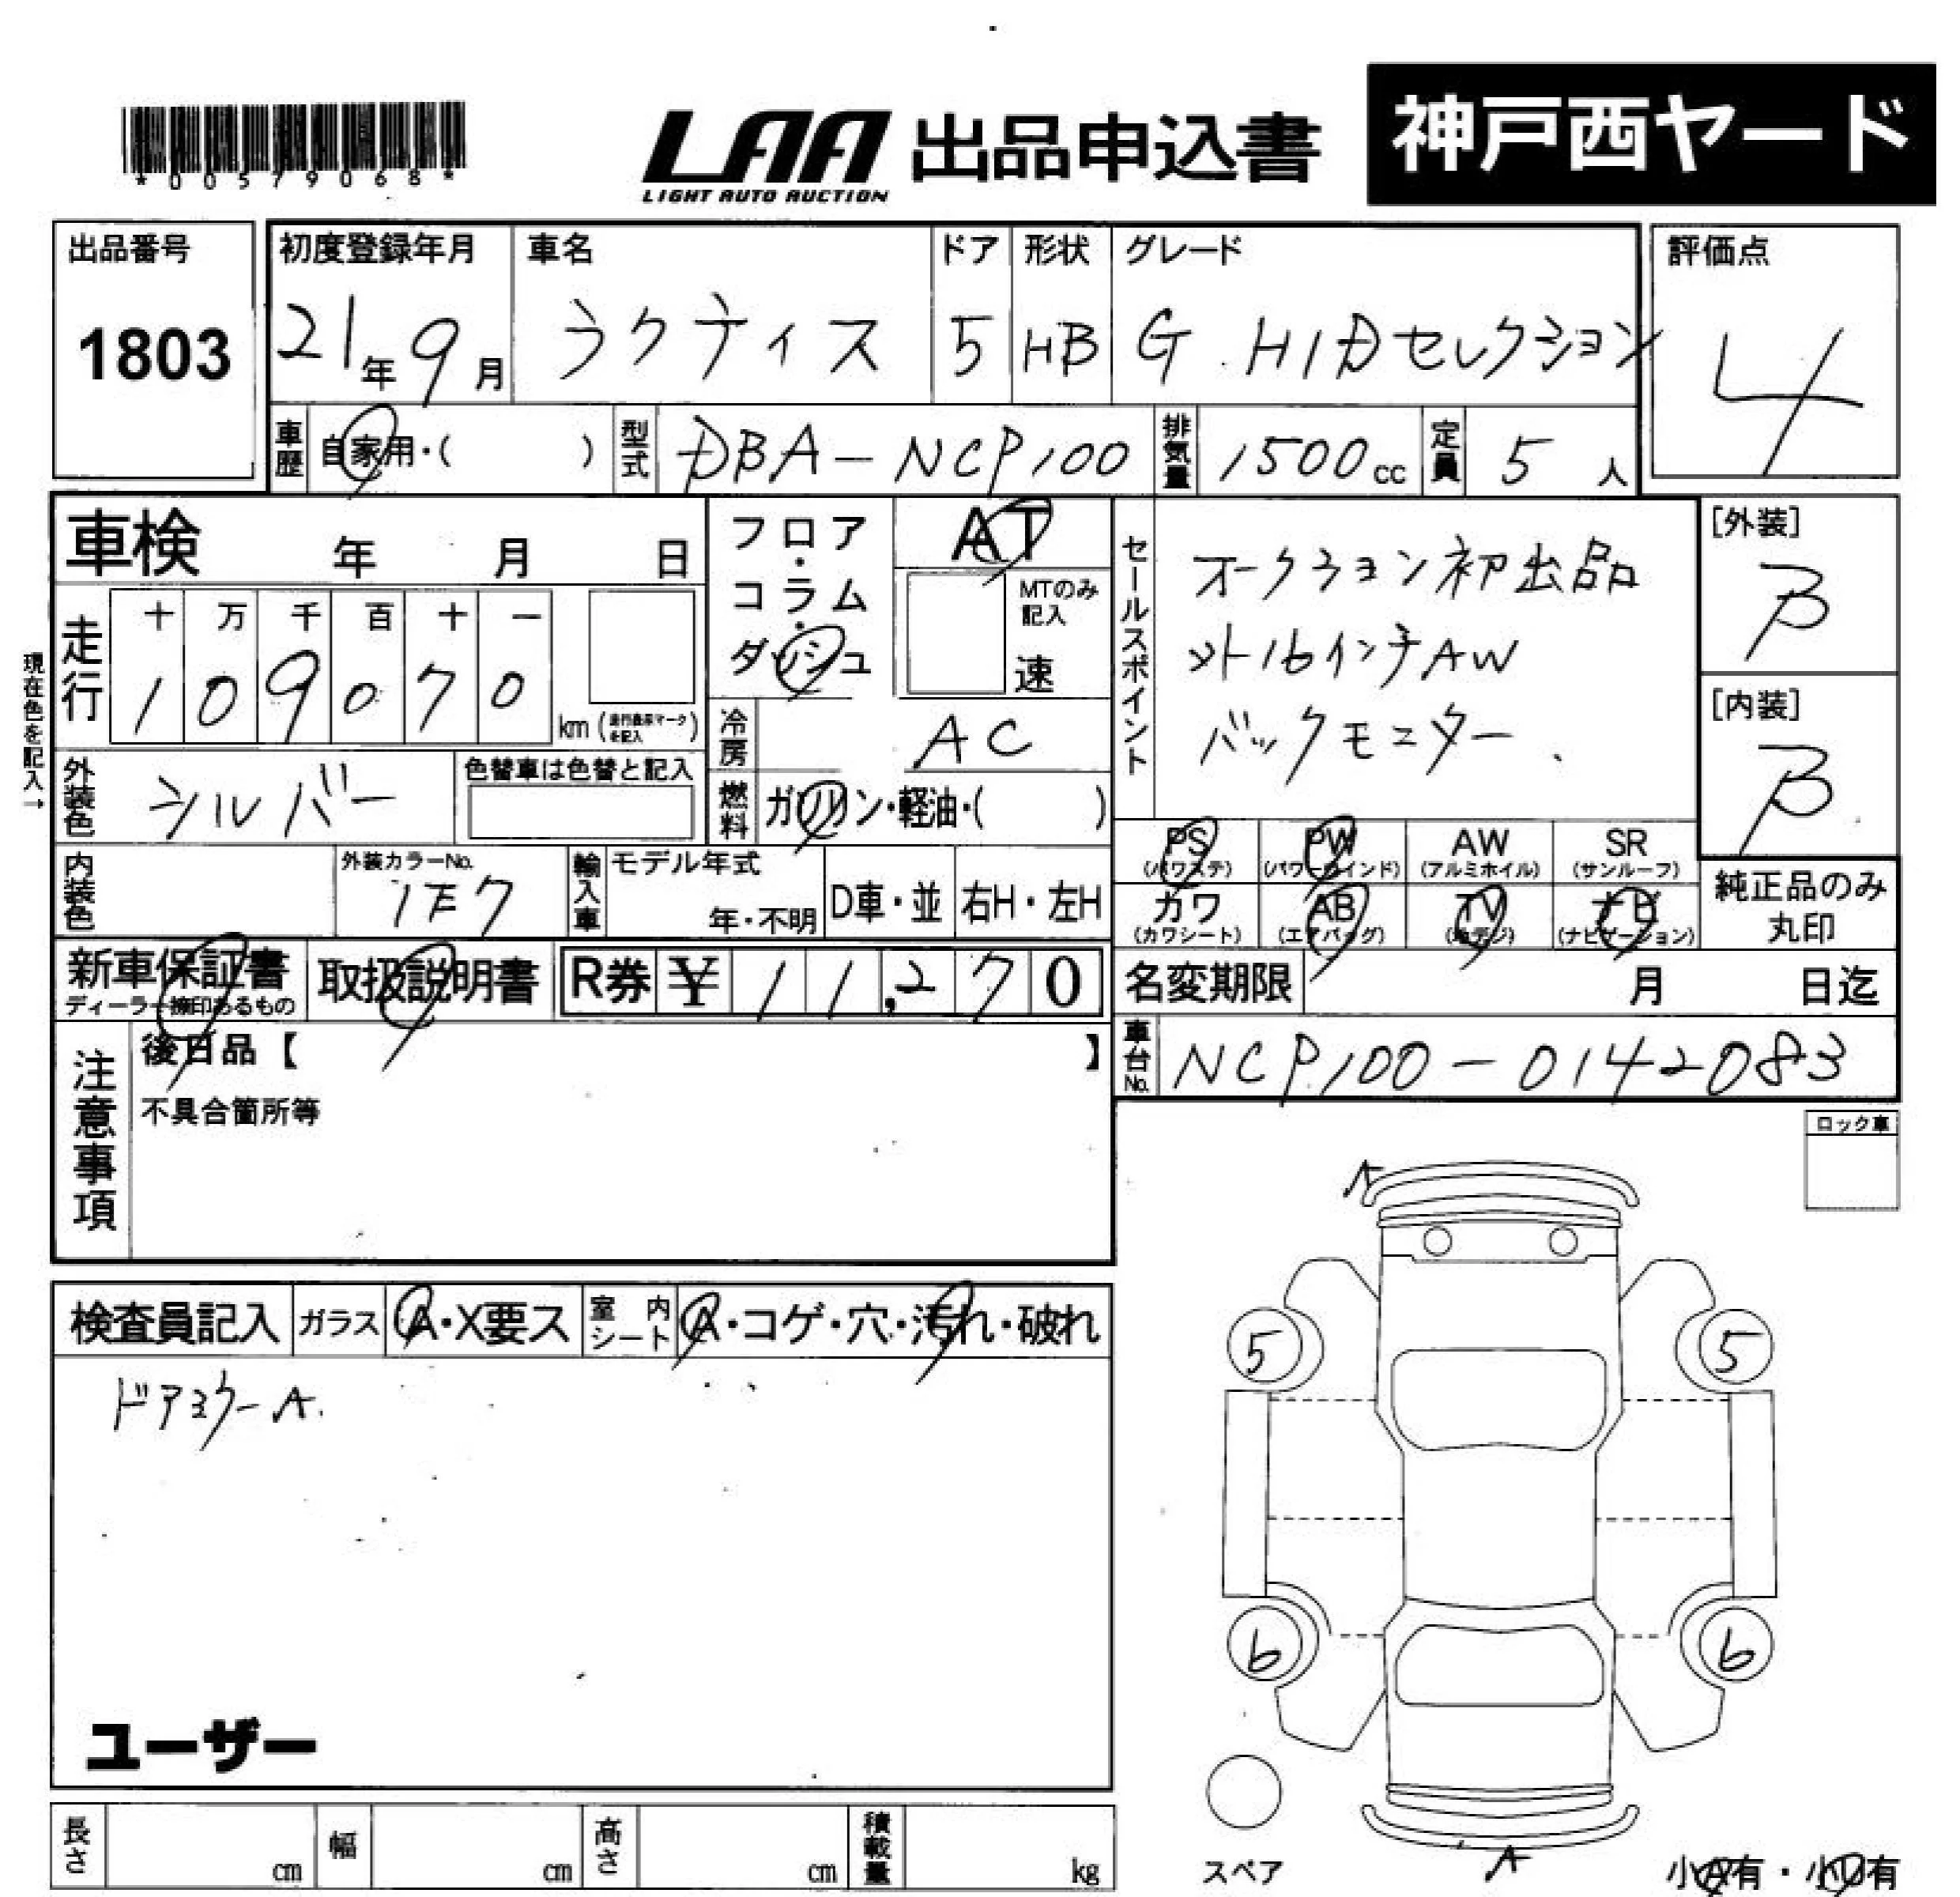 *00579068*
LAA 出品申込書 神戸西ヤード
LIGHT AUTO AUCTION
出品番号 初度登録年月 車名 ドア 形状 グレード 評価点
1803 21年9月 ラクティス 5 HB G HIDセレクション 4
車歴 自家用・( ) 型式 DBA-NCP100 排気量 1500cc 定員 5人
車検 年 月 日
フロア・コラム・ダッシュ
AT
MTのみ記入
速
セールスポイント
オークション初出品
ソト16インチAW
バックモニター
[外装]
B
[内装]
B
現在色を記入→
走行 十 万 千 百 十 一
1 0 9 0 7 0 km (走行表示マークを記入)
冷房 AC
外装色 シルバー 色替車は色替と記入
燃料 ガソリン・軽油・( )
PS (パワステ) PW (パワーウインド) AW (アルミホイル) SR (サンルーフ)
カワ (カワシート) AB (エアバッグ) TV (地デジ) ナビ (ナビゲーション)
純正品のみ
丸印
内装色 外装カラーNo. 1E7 輸入車 モデル年式 年・不明 D車・並 右H・左H
新車保証書 取扱説明書 R券 ¥ 11,270
ディーラー捺印あるもの
名変期限 月 日迄
車台No. NCP100-0142083
注意事項
後日品【 】
不具合箇所等
ロック車
A
検査員記入 ガラス A・X要ス 室内シート A・コゲ・穴・汚れ・破れ
ドアミラーA.
5 5
6 6
ユーザー
スペア
A
小A有・小U有
長さ cm 幅 cm 高さ cm 積載量 kg